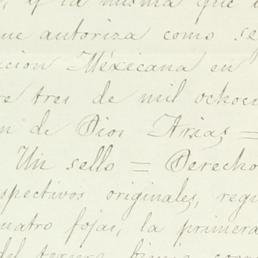 y la misma que
que autoriza como se
cion Mexicana en
re tres de mil ochoci
n de Dios Arias =
Un sello = Derecho
spectivos originales, regi
uatro fojas, la primera
del tercero